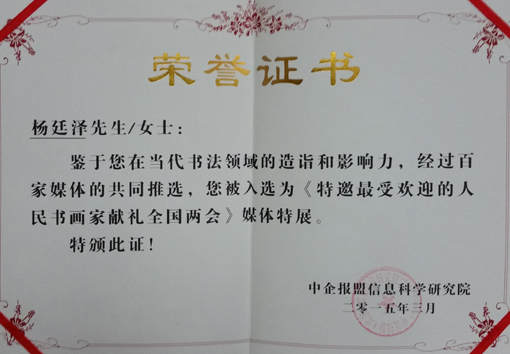 荣誉证书
杨廷泽先生/女士:
鉴于您在当代书法领域的造诣和影响力，经过百
家媒体的共同推选，您被入选为《特邀最受欢迎的人
民书画家献礼全国两会》媒体特展。
特颁此证!
中企报盟信息科学研究院
二零一五年三月